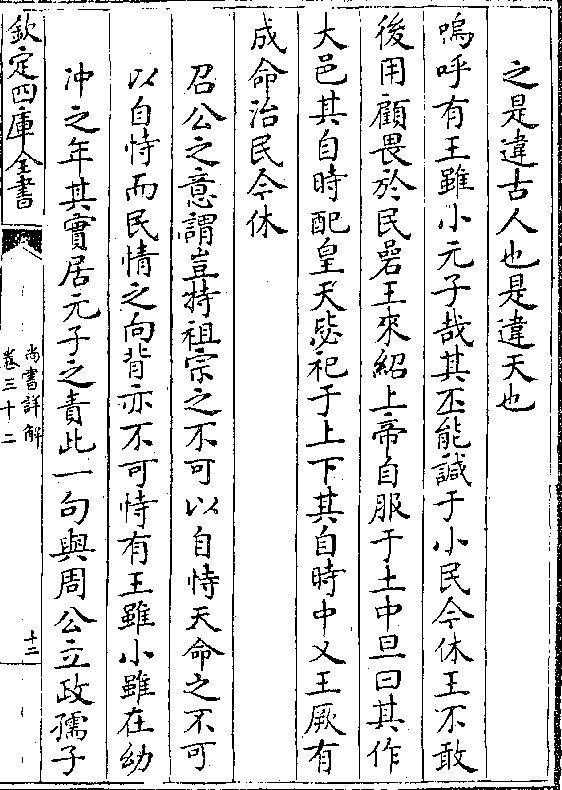 之是違古人也是違天也
嗚呼有王雖小元子哉其丕能諴于小民今休王不敢
後用顧畏於民碞王來紹上帝自服于土中旦曰其作
大邑其自時配皇天毖祀于上下其自時中乂王厥有
成命治民今休
召公之意謂豈特祖宗之不可以自恃天命之不可
以自恃而民情之向背亦不可恃有王雖小雖在幼
冲之年其實居元子之責此一句與周公立政孺子
欽定四庫全書
尚書詳解
卷三十二
十二